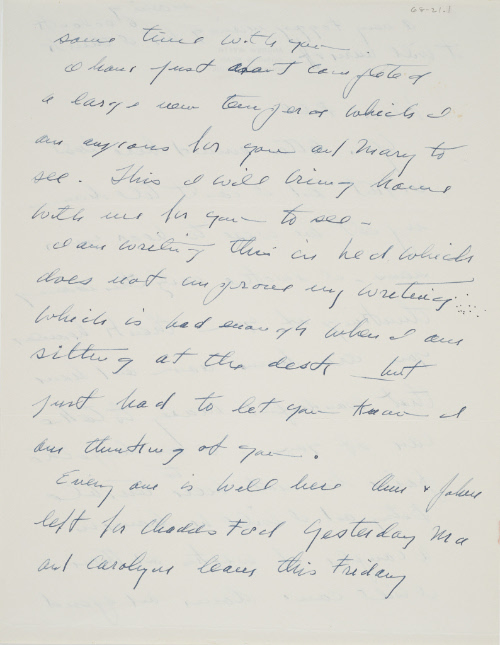 some time with you.
I have just about completed
a large new tempera which I
am anxious for you and Mary to
see. This I will bring home
with me for you to see –
I am writing this in bed which
does not improve my writing
which is bad enough when I am
sitting at the desk but
just had to let you know I
am thinking of you.
Every one is well here Ann & John
left for Chadds Ford yesterday Ma
and Carolyn leave this Friday